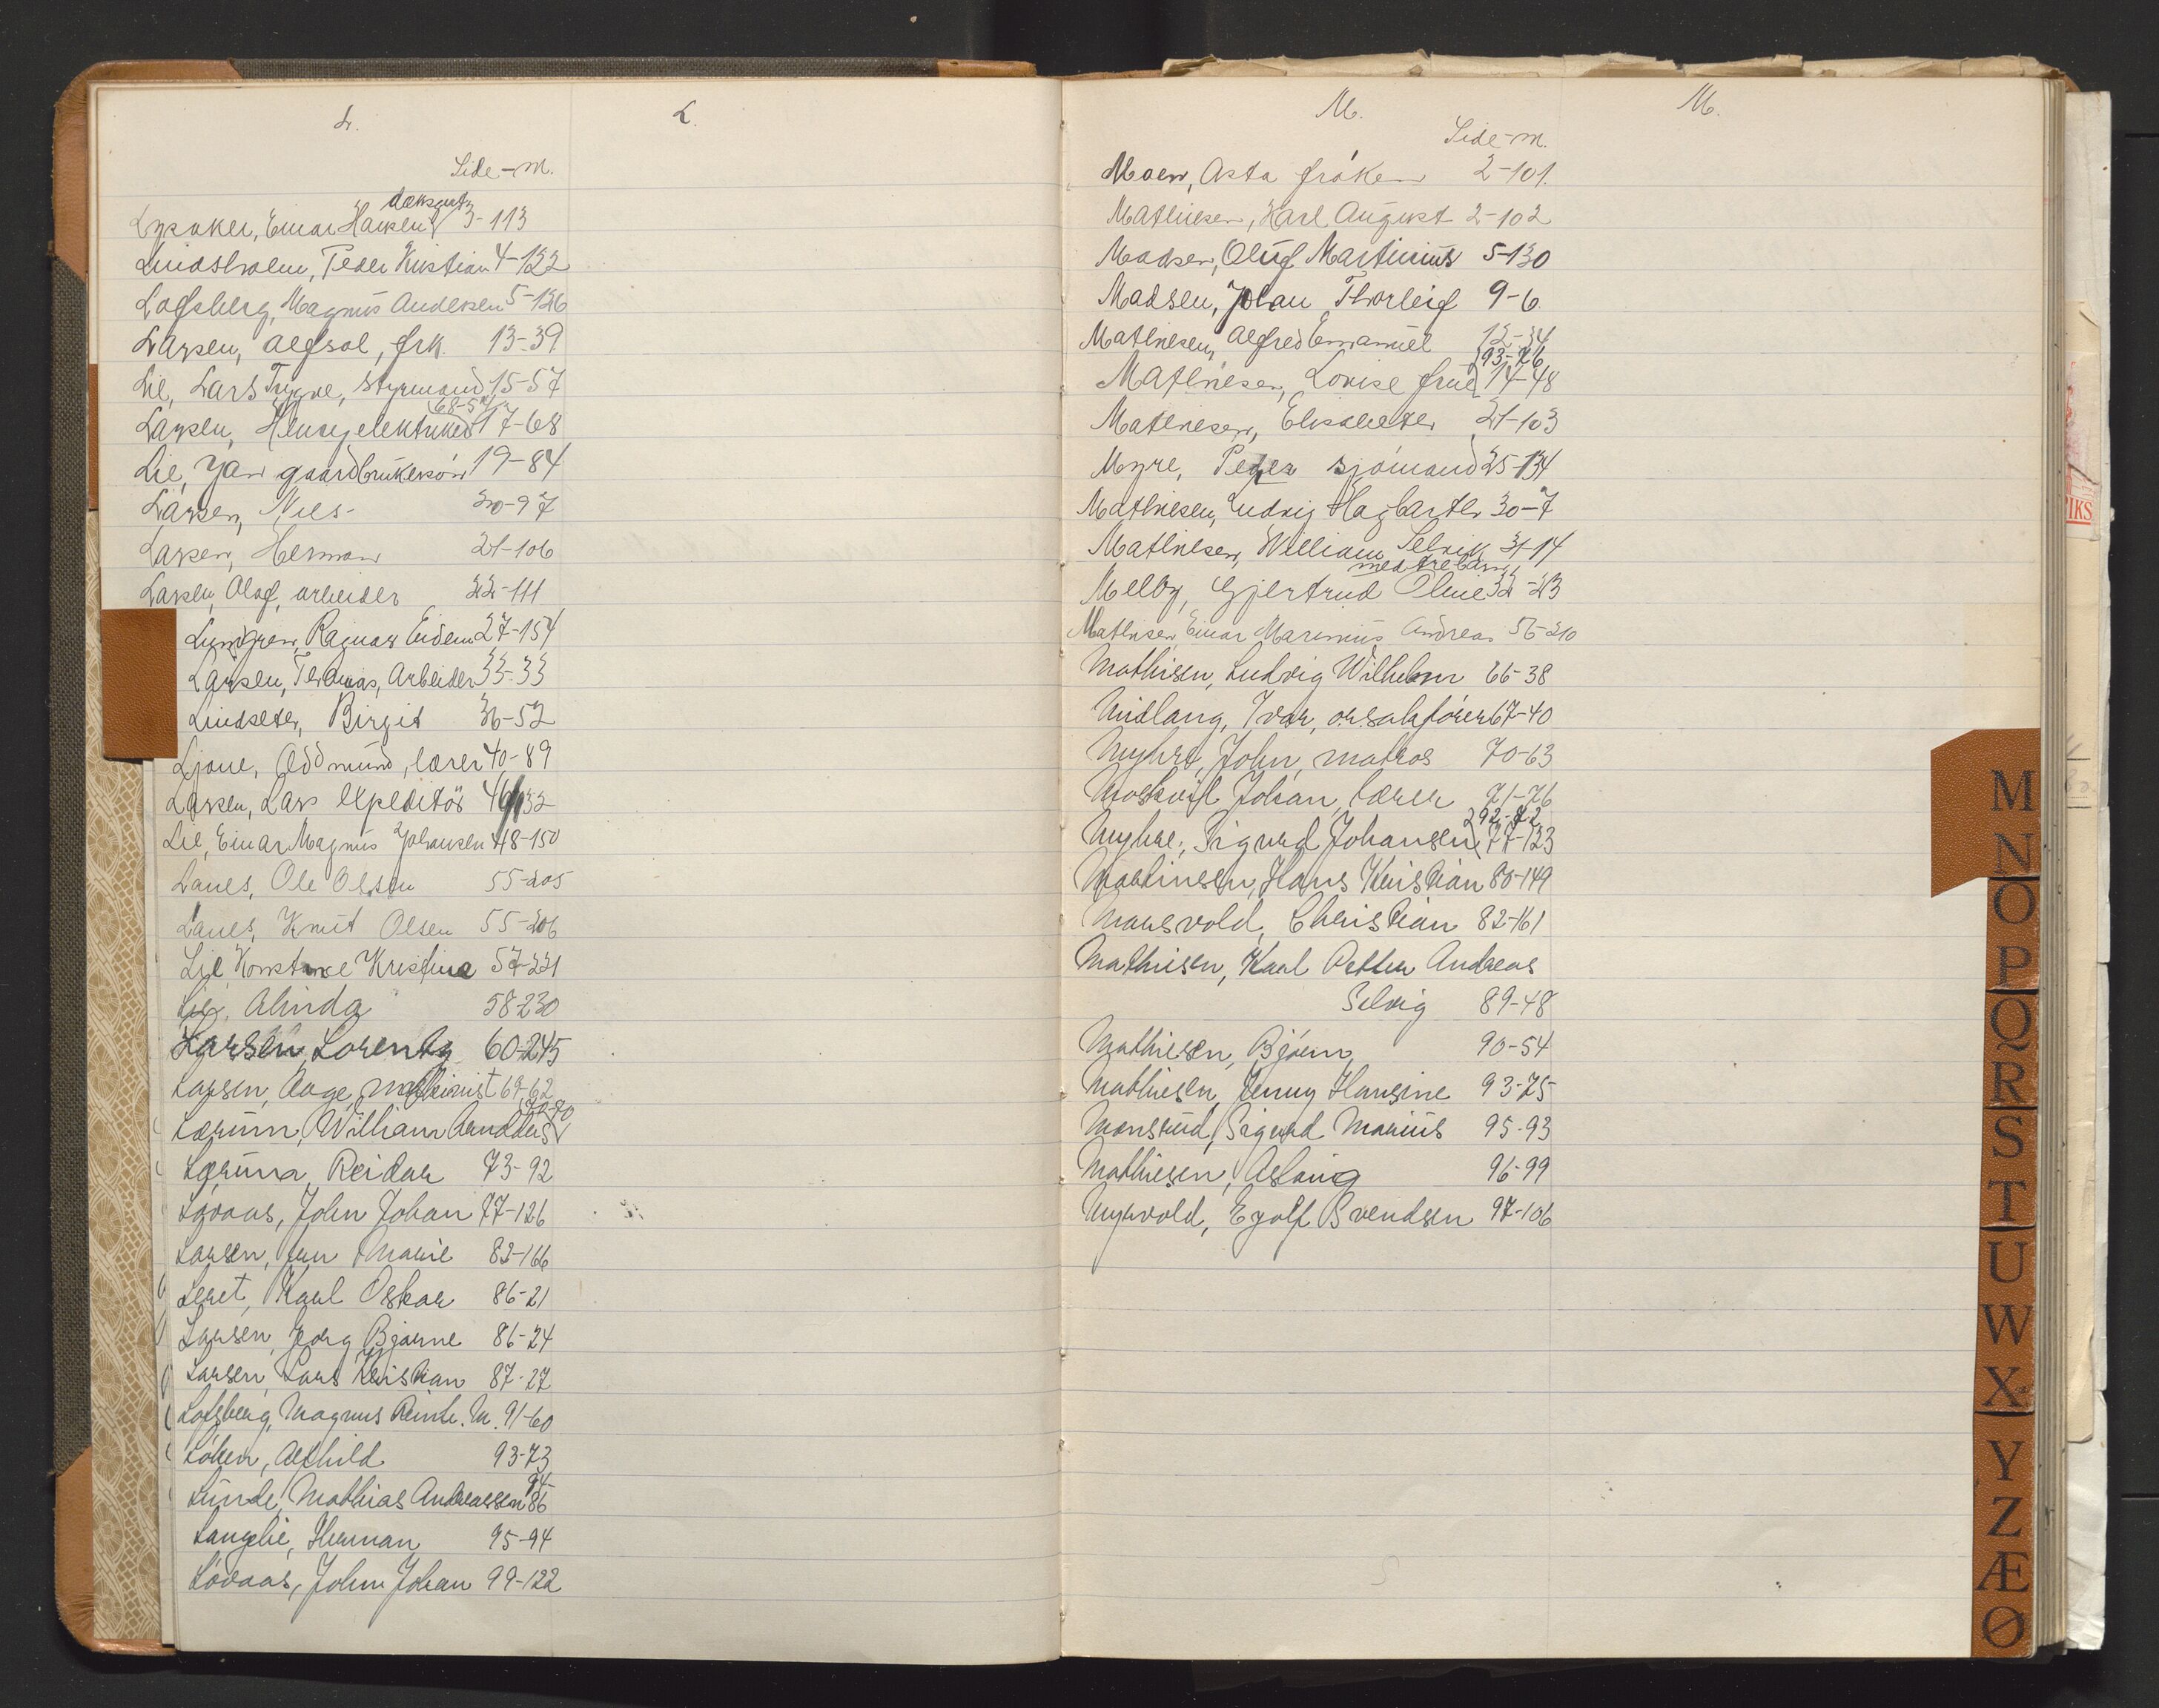 L.
L.
Side - M.
Lysaker, Einar Hansen 3-113
Lindsholm, Peder Kristian 4-122
Lofsberg, Magnus Andersen 5-126
Larsen, Alfsol, frk. 13-39
Lie, Lars Trygve, styrmand 15-57
68-54
Larsen, Henry elektriker 17-68
Lie, Jan gaardbrukersön 19-84
Larsen, Nils- 20-97
Larsen, Herman 21-106
Larsen, Olaf, arbeider 22-111
Lundgren, Ragnar Eidem 27-154
Larsen, Thomas, Arbeider 33-33
Lindseter, Birgit 36-52
Ljone, Oddmund, lærer 40-89
Larsen, Lars expeditör 46-132
Lie, Einar Magnus Johansen 48-150
Lanes, Ole Olsen 55-205
Lanes, Knut Olsen 55-206
Lie, Konstance Kristine 57-221
Lie, Alinda 58-230
Larsen, Lorentz 60-245
Larsen, Aage, maskinist 69-62
70-70
Lærum, William Arnolds
Lærum, Reidar 73-92
Lövaas, John Johan 77-126
Larsen, fru Marie 83-166
Leret, Karl Oskar 86-21
Larsen, Georg Bjarne 86-24
Larsen, Lars Kristian 87-27
Lofsberg, Magnus Reinh. M. 91-60
Löken, Alfhild 93-73
94-
Lunde, Mathias Andreassen 86
Langlie, Herman 95-94
Lövaas, John Johan 99-122
M.
M.
Side - M.
Moen, Asta fröken 2-101.
Mathiesen, Karl August 2-102
Madsen, Oluf Martinius 5-130
Madsen, Johan Thorleif 9-6
Mathiesen, Alfred Emanuel 12-34
93-76
Mathiesen, Lovise frue 14-48
Mathiesen, Elisabeth 21-103
Myre, Peder sjömand 25-134
Mathiesen, Ludvig Hagbarth 30-7
Mathiesen, William Selvik 31-14
med tre barn
Melby, Gjertrud Oline 32-23
Mathisen, Einar Marinius Andreas 56-210
Mathisen, Ludvig Wilhelm 66-38
Midlang, Ivar, o.r.sakförer 67-40
Myhre, John, matros 70-63
Moskvil, Johan, lærer 71-76
92-72
Myhre, Sigurd Johansen 77-123
Martinsen, Hans Kristian 80-149
Mansvold, Christian 82-161
Mathisen, Karl Petter Andreas
Selvig 89-48
Mathiesen, Björn 90-54
Mathiesen, Jenny Hansine 93-75
Mønstud, Sigurd Marius 95-93
Mathiesen, Aslaug 96-99
Myrvold, Egolf Svendsen 97-106
M
N
O
P
Q
R
S
T
U
W
X
Y
Z
Æ
Ø